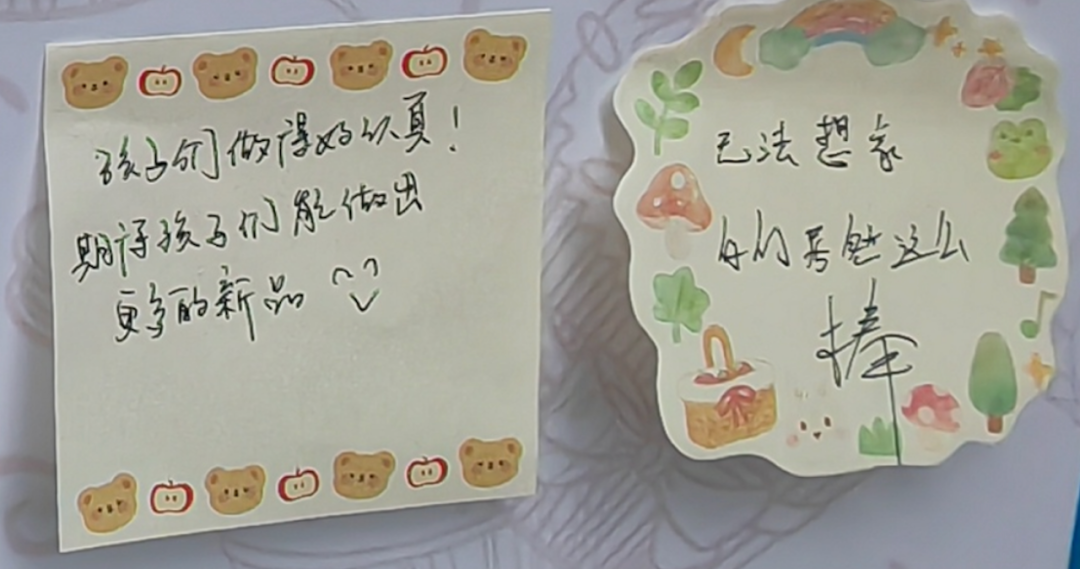 孩子们做得好认真！
期待孩子们能做出
更多的新品
无法想象
们居然这么
棒